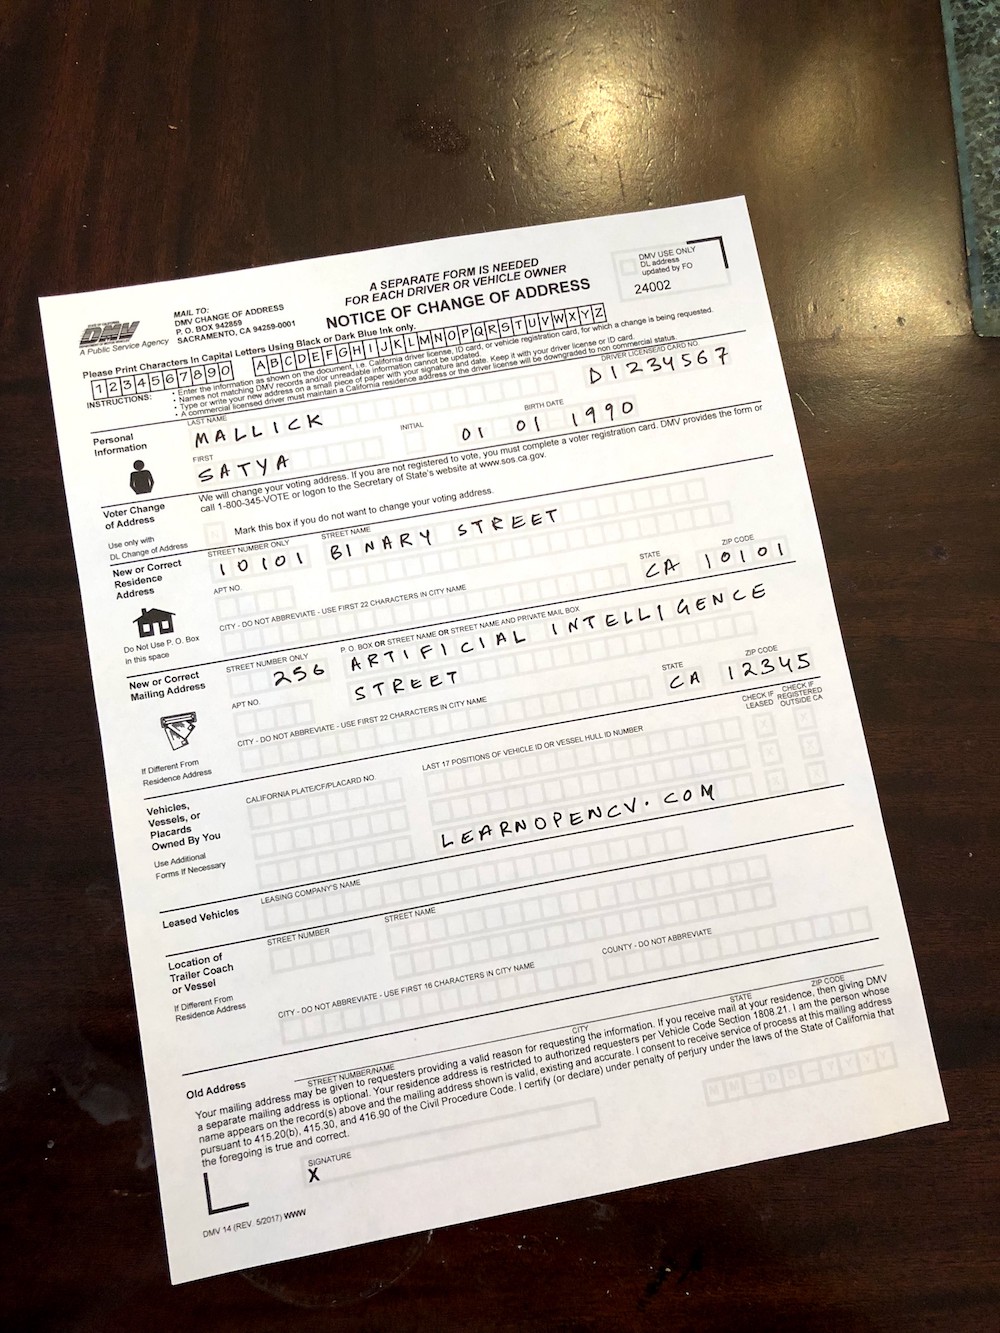 DMV
A Public Service Agency
MAIL TO:
DMV CHANGE OF ADDRESS
P. O. BOX 942859
SACRAMENTO, CA 94259-0001
A SEPARATE FORM IS NEEDED
FOR EACH DRIVER OR VEHICLE OWNER
NOTICE OF CHANGE OF ADDRESS
DMV USE ONLY
DL address
updated by FO
24002
Please Print Characters In Capital Letters Using Black or Dark Blue Ink only.
1234567890 ABCDEFGHIJKLMNOPQRSTUVWXYZ
INSTRUCTIONS:
• Enter the information as shown on the document, i.e. California driver license, ID card, or vehicle registration card, for which a change is being requested.
• Names not matching DMV records and/or unreadable information cannot be updated.
• Type or write your new address on a small piece of paper with your signature and date. Keep it with your driver license or ID card.
• A commercial licensed driver must maintain a California residence address or the driver license will be downgraded to non commercial status.
Personal
Information
LAST NAME
MALLICK
DRIVER LICENSE/ID CARD NO.
D1234567
FIRST
SATYA
INITIAL
BIRTH DATE
01 01 1990
Voter Change
of Address
Use only with
DL Change of Address
We will change your voting address. If you are not registered to vote, you must complete a voter registration card. DMV provides the form or
call 1-800-345-VOTE or logon to the Secretary of State's website at www.sos.ca.gov.
Mark this box if you do not want to change your voting address.
New or Correct
Residence
Address
Do Not Use P. O. Box
in this space
STREET NUMBER ONLY
10101
STREET NAME
BINARY STREET
APT NO.
CITY - DO NOT ABBREVIATE - USE FIRST 22 CHARACTERS IN CITY NAME
STATE
CA
ZIP CODE
10101
New or Correct
Mailing Address
If Different From
Residence Address
STREET NUMBER ONLY
256
P. O. BOX OR STREET NAME OR STREET NAME AND PRIVATE MAIL BOX
ARTIFICIAL INTELLIGENCE
STREET
APT NO.
CITY - DO NOT ABBREVIATE - USE FIRST 22 CHARACTERS IN CITY NAME
STATE
CA
ZIP CODE
12345
Vehicles,
Vessels, or
Placards
Owned By You
Use Additional
Forms If Necessary
CALIFORNIA PLATE/CF/PLACARD NO.
LAST 17 POSITIONS OF VEHICLE ID OR VESSEL HULL ID NUMBER
CHECK IF
LEASED
CHECK IF
REGISTERED
OUTSIDE CA
LEARNOPENCV.COM
Leased Vehicles
LEASING COMPANY'S NAME
Location of
Trailer Coach
or Vessel
If Different From
Residence Address
STREET NUMBER
STREET NAME
CITY - DO NOT ABBREVIATE - USE FIRST 16 CHARACTERS IN CITY NAME
COUNTY - DO NOT ABBREVIATE
Old Address
STREET NUMBER/NAME
CITY
STATE
ZIP CODE
Your mailing address may be given to requesters providing a valid reason for requesting the information. If you receive mail at your residence, then giving DMV
a separate mailing address is optional. Your residence address is restricted to authorized requesters per Vehicle Code Section 1808.21. I am the person whose
name appears on the record(s) above and the mailing address shown is valid, existing and accurate. I consent to receive service of process at this mailing address
pursuant to 415.20(b), 415.30, and 416.90 of the Civil Procedure Code. I certify (or declare) under penalty of perjury under the laws of the State of California that
the foregoing is true and correct.
MM-DD-YYYY
SIGNATURE
X
DMV 14 (REV. 5/2017) WWW